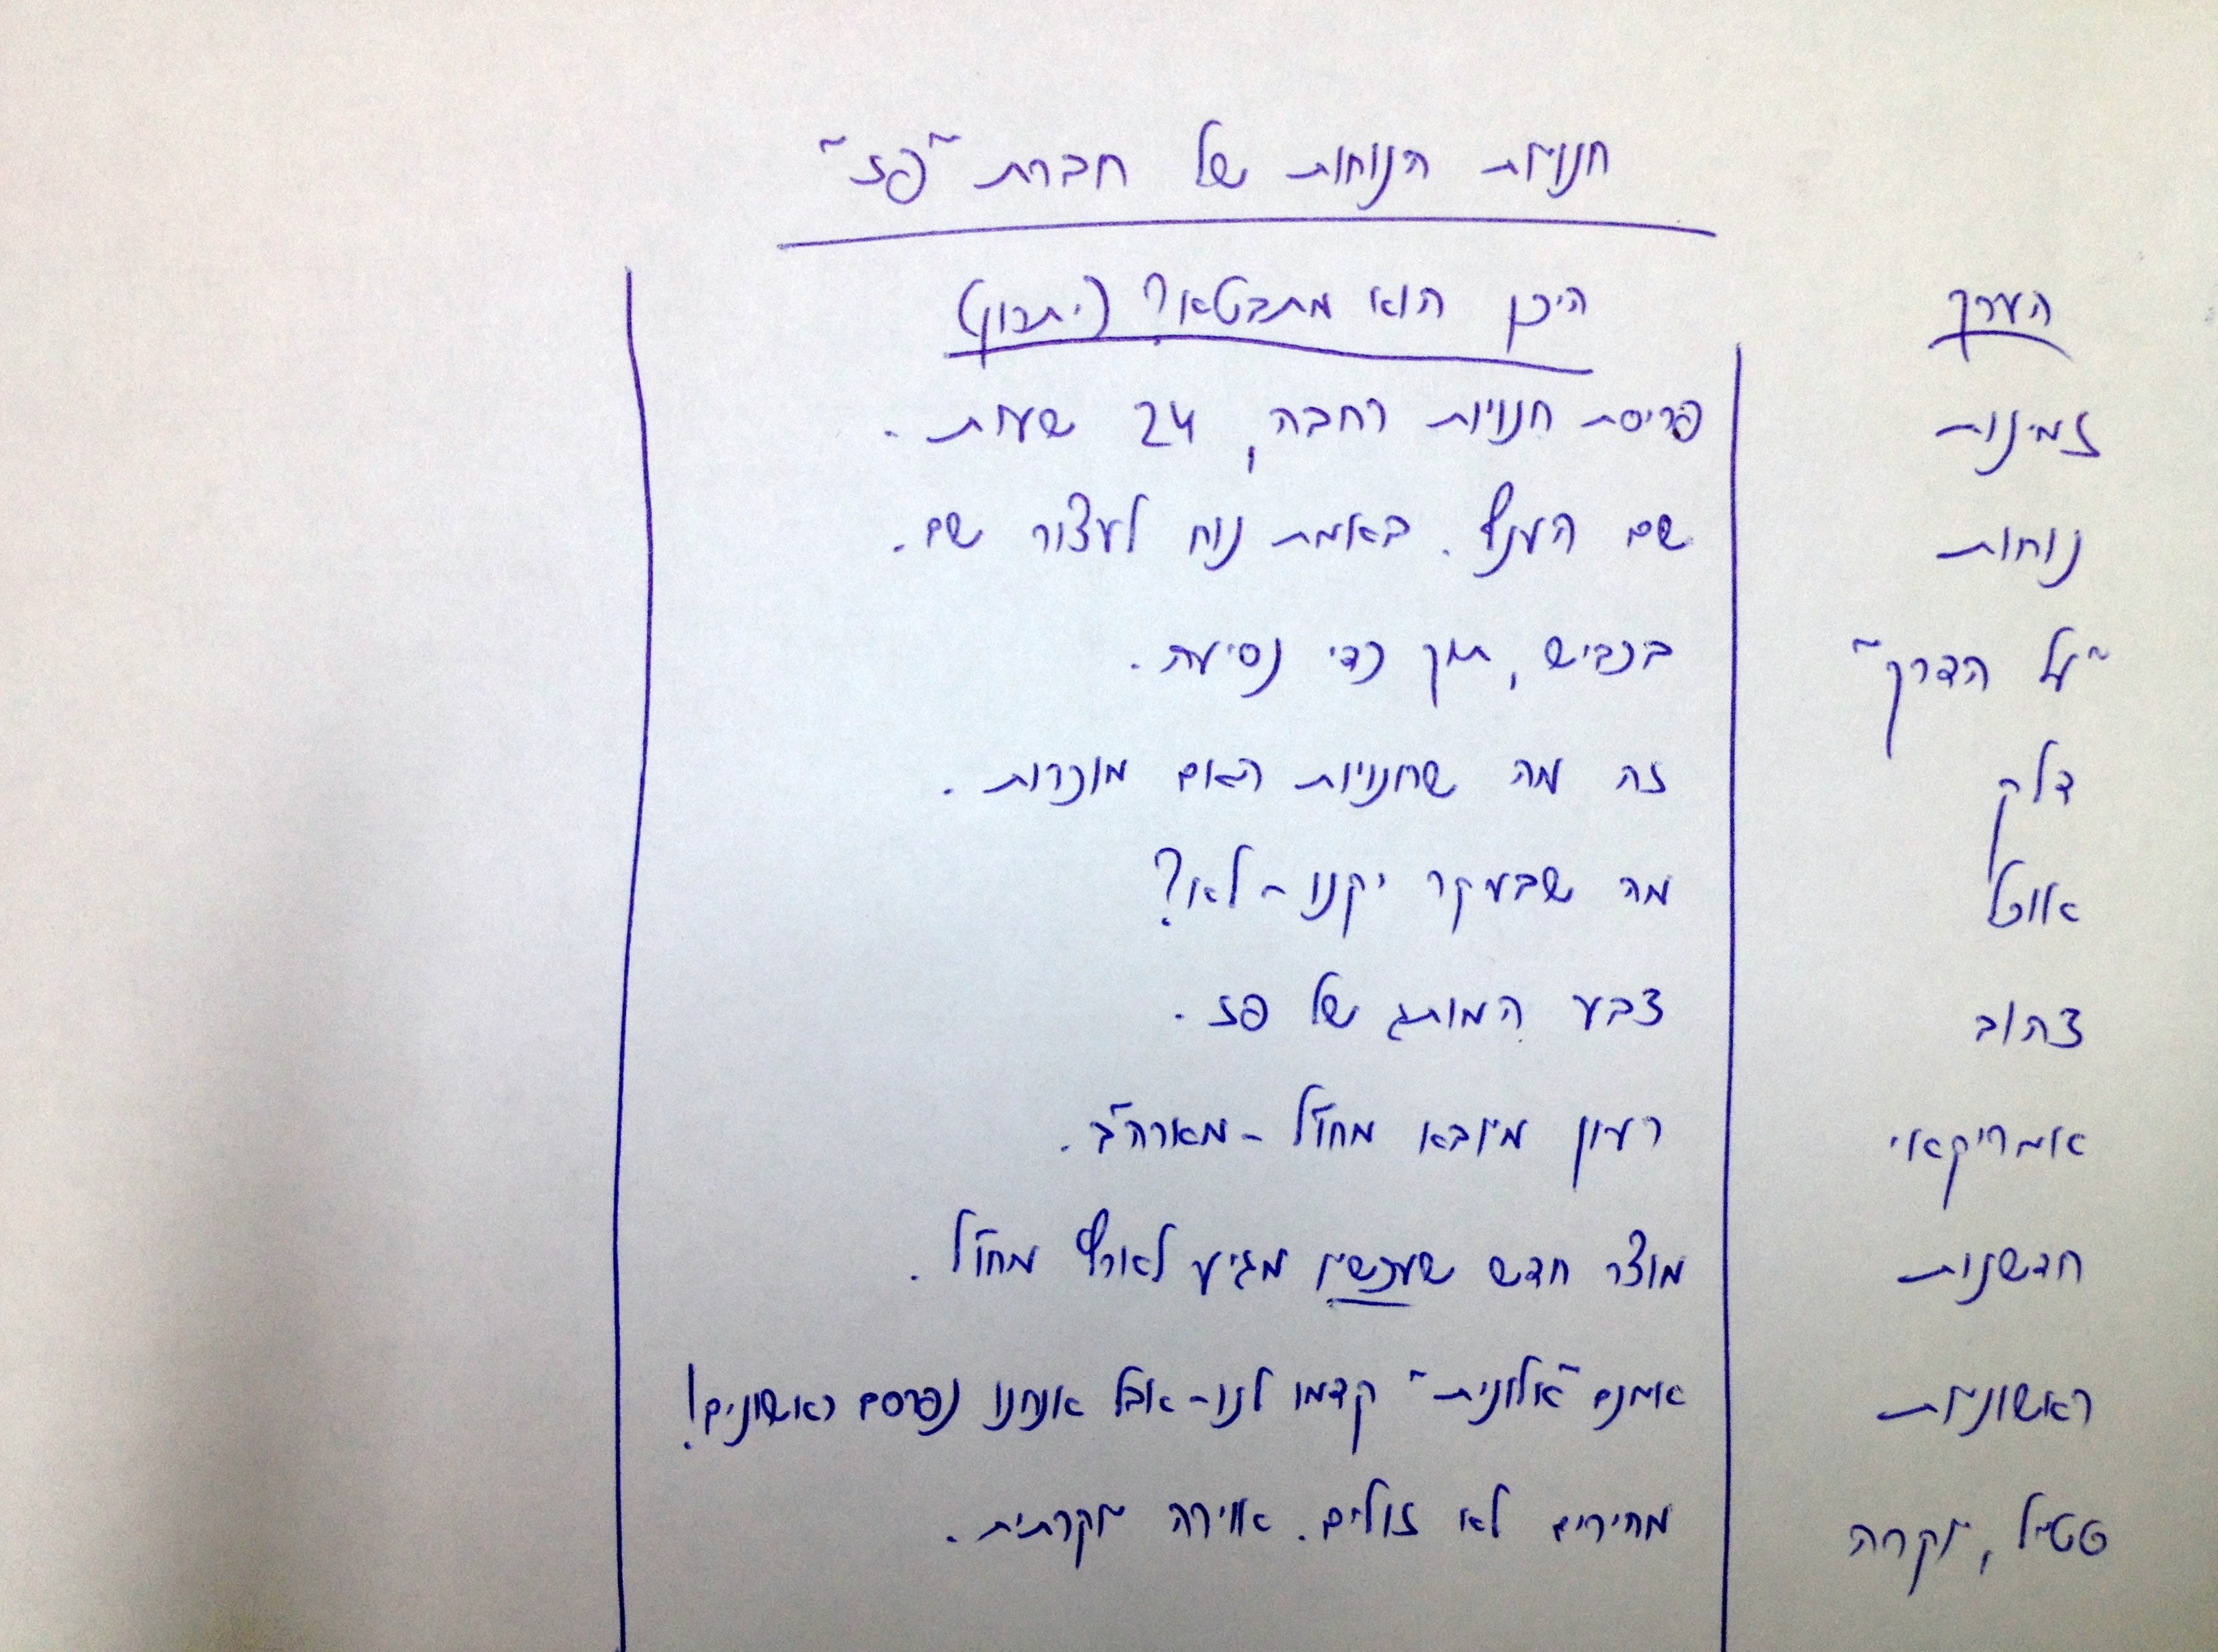 חנויות הנוחות של חברת "פז"
הערך היכן הוא מתבטא? (יתרון)
זמינות פריסת חנויות רחבה, 24 שעות.
נוחות שם הענף. באמת נוח לעצור שם.
"על הדרך" בכביש, תוך כדי נסיעה.
דלק זה מה שחנויות האום מוכרות.
אוכל מה שבעקר יקנו - לא?
צהוב צבע המותג של פז.
אמריקאי רעיון מיובא מחו"ל - מארה"ב.
חדשנות מוצר חדש שעכשיו מגיע לארץ מחו"ל.
ראשוניות אמנם "אלונית" קדמו לנו - אבל אנחנו נפרסם ראשונים!
סטייל, יוקרה מחירים לא זולים. אווירה יוקרתית.